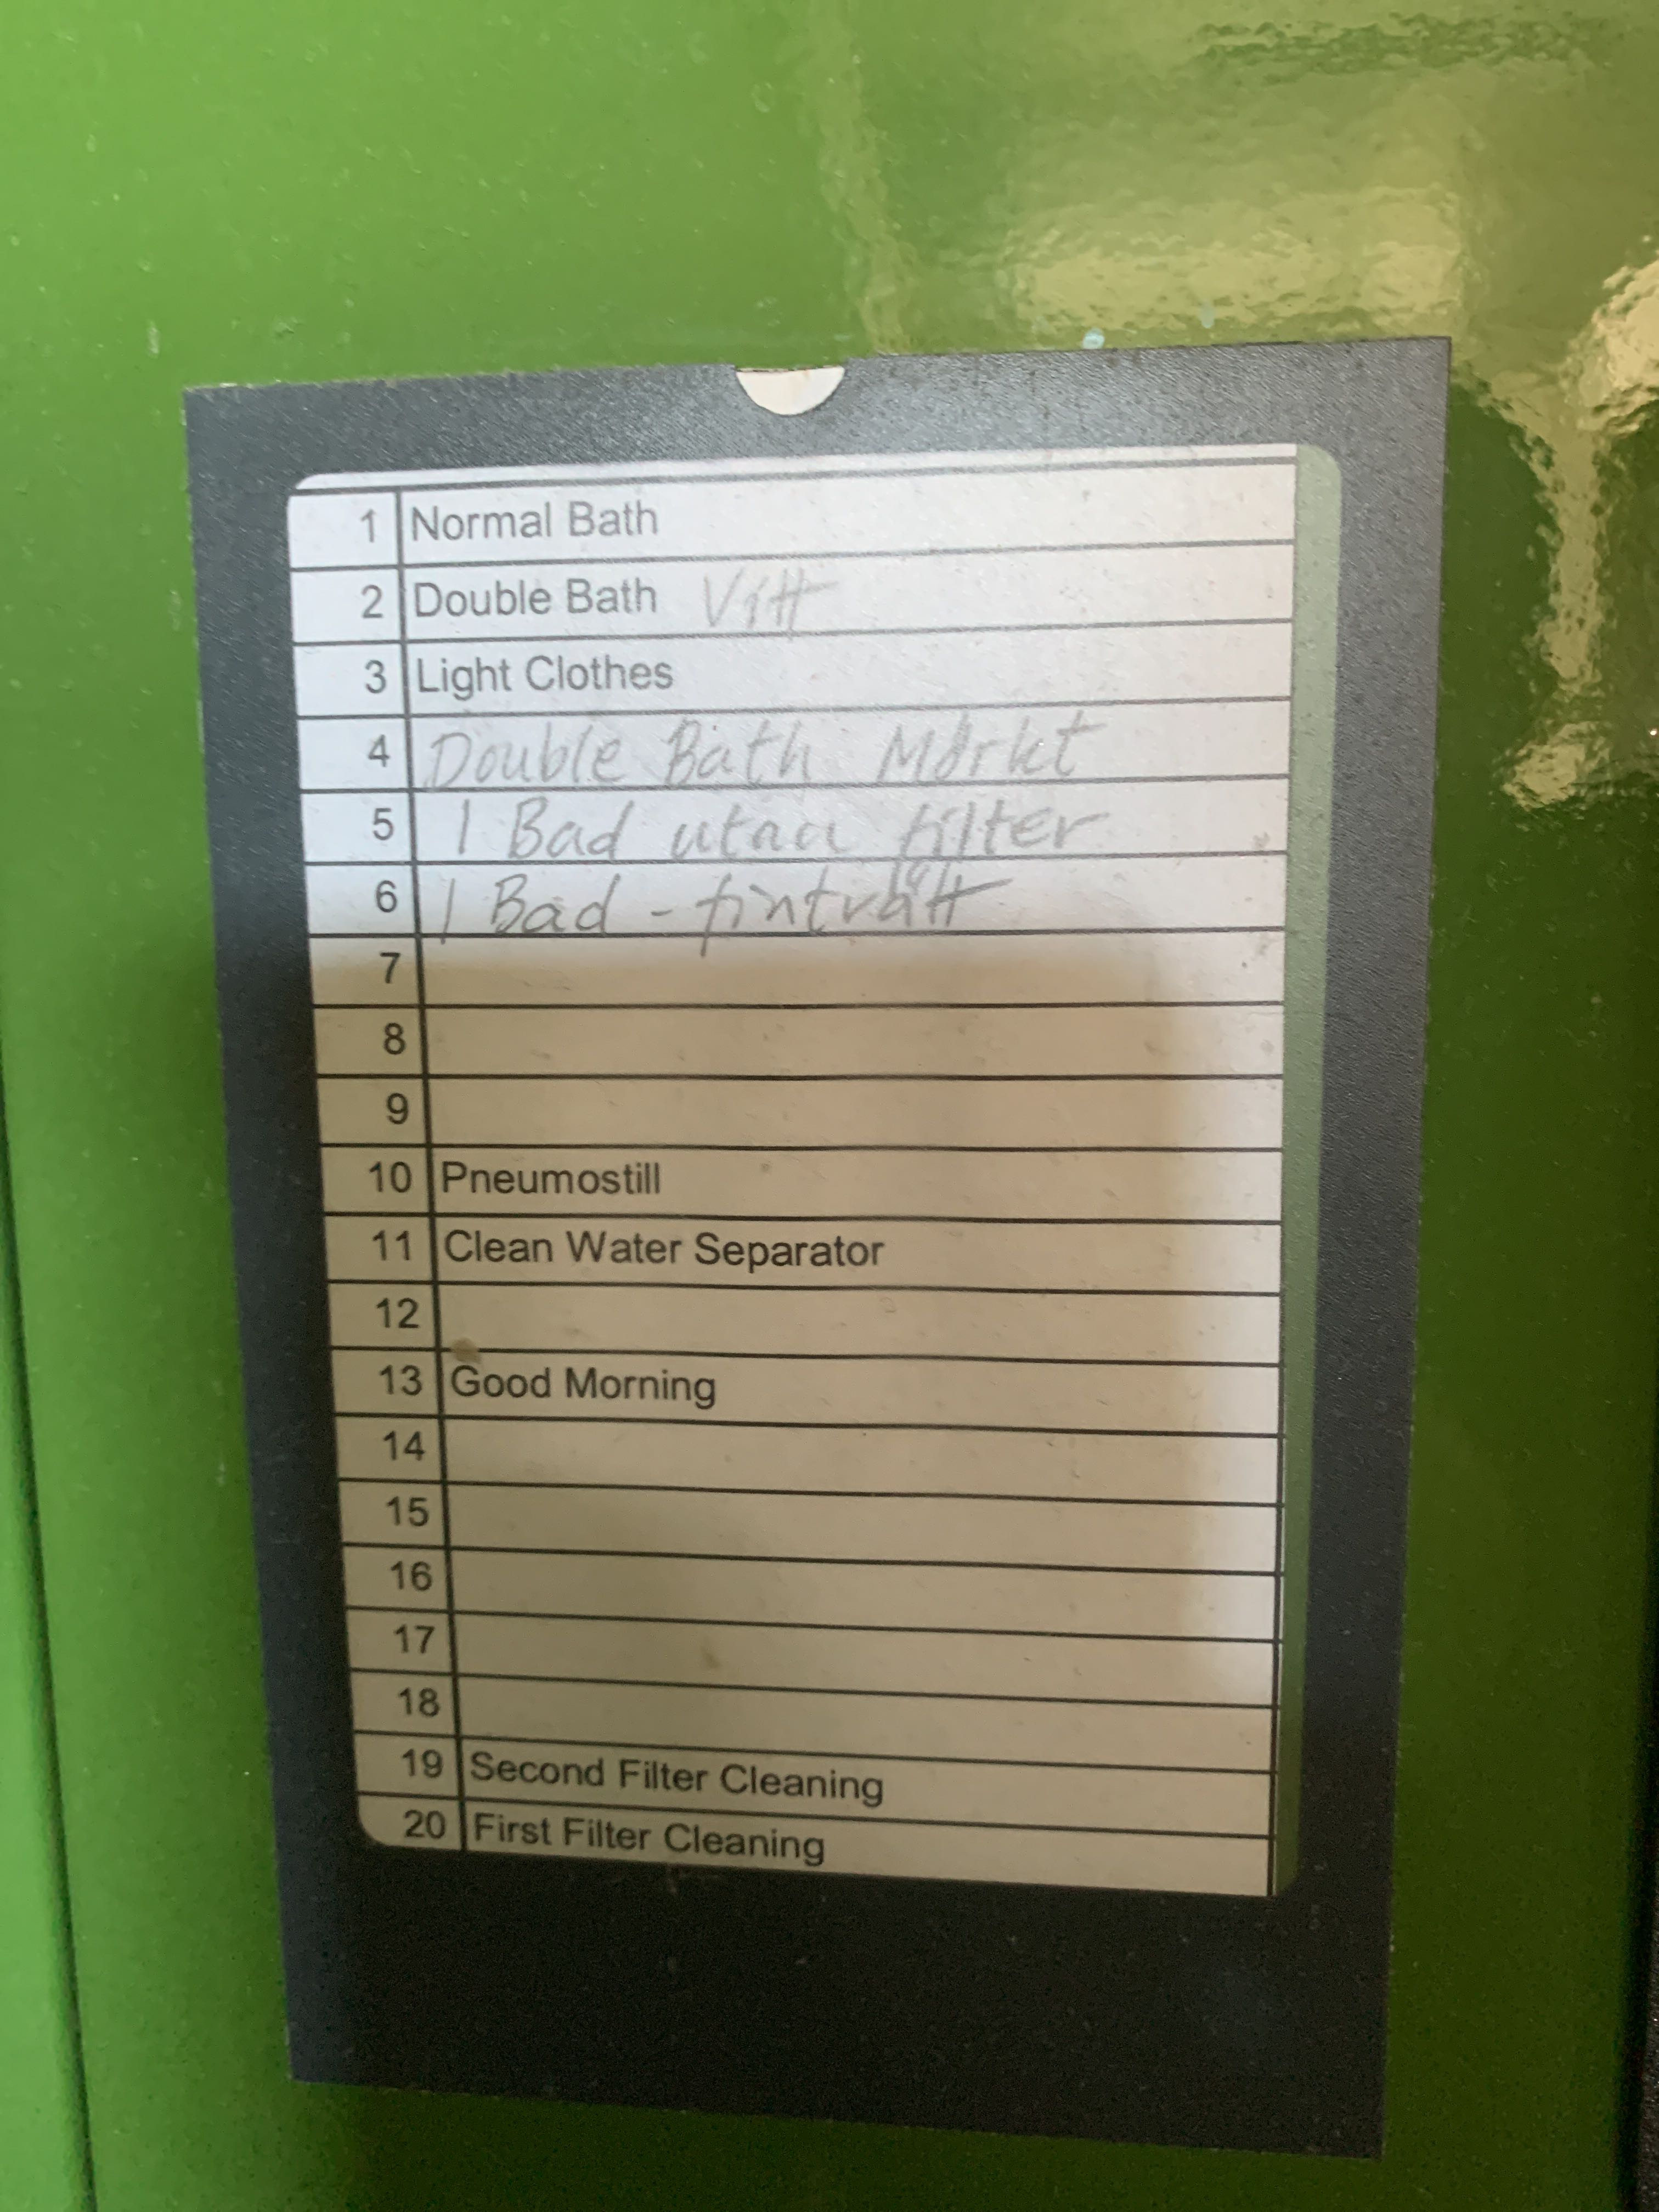 1 Normal Bath
2 Double Bath Vitt
3 Light Clothes
4 Double Bath Mörkt
5 1 Bad utan filter
6 1 Bad - fintvätt
7
8
9
10 Pneumostill
11 Clean Water Separator
12
13 Good Morning
14
15
16
17
18
19 Second Filter Cleaning
20 First Filter Cleaning